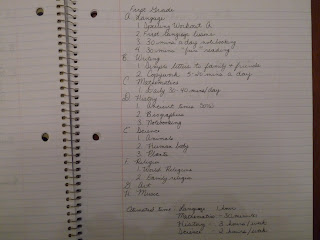 First Grade
A. Language
1. Spelling Workout A
2. First Language Lessons
3. 30 mins a day notebooking
4. 30 mins "fun" reading
B. Writing
1. Simple letters to family & friends
2. Copywork 5-20 mins a day
C. Mathematics
1. Daily 30-40 mins/day
D. History
1. Ancient times
2. Biographies
3. Notebooking
E. Science
1. Animals
2. Human body
3. Plants
F. Religion
1. World Religions
2. Family religion
G. Art
H. Music
Allocated time: Language 1 hour
Mathematics - 30
History - 3 hours/week
Science 2 hours/week